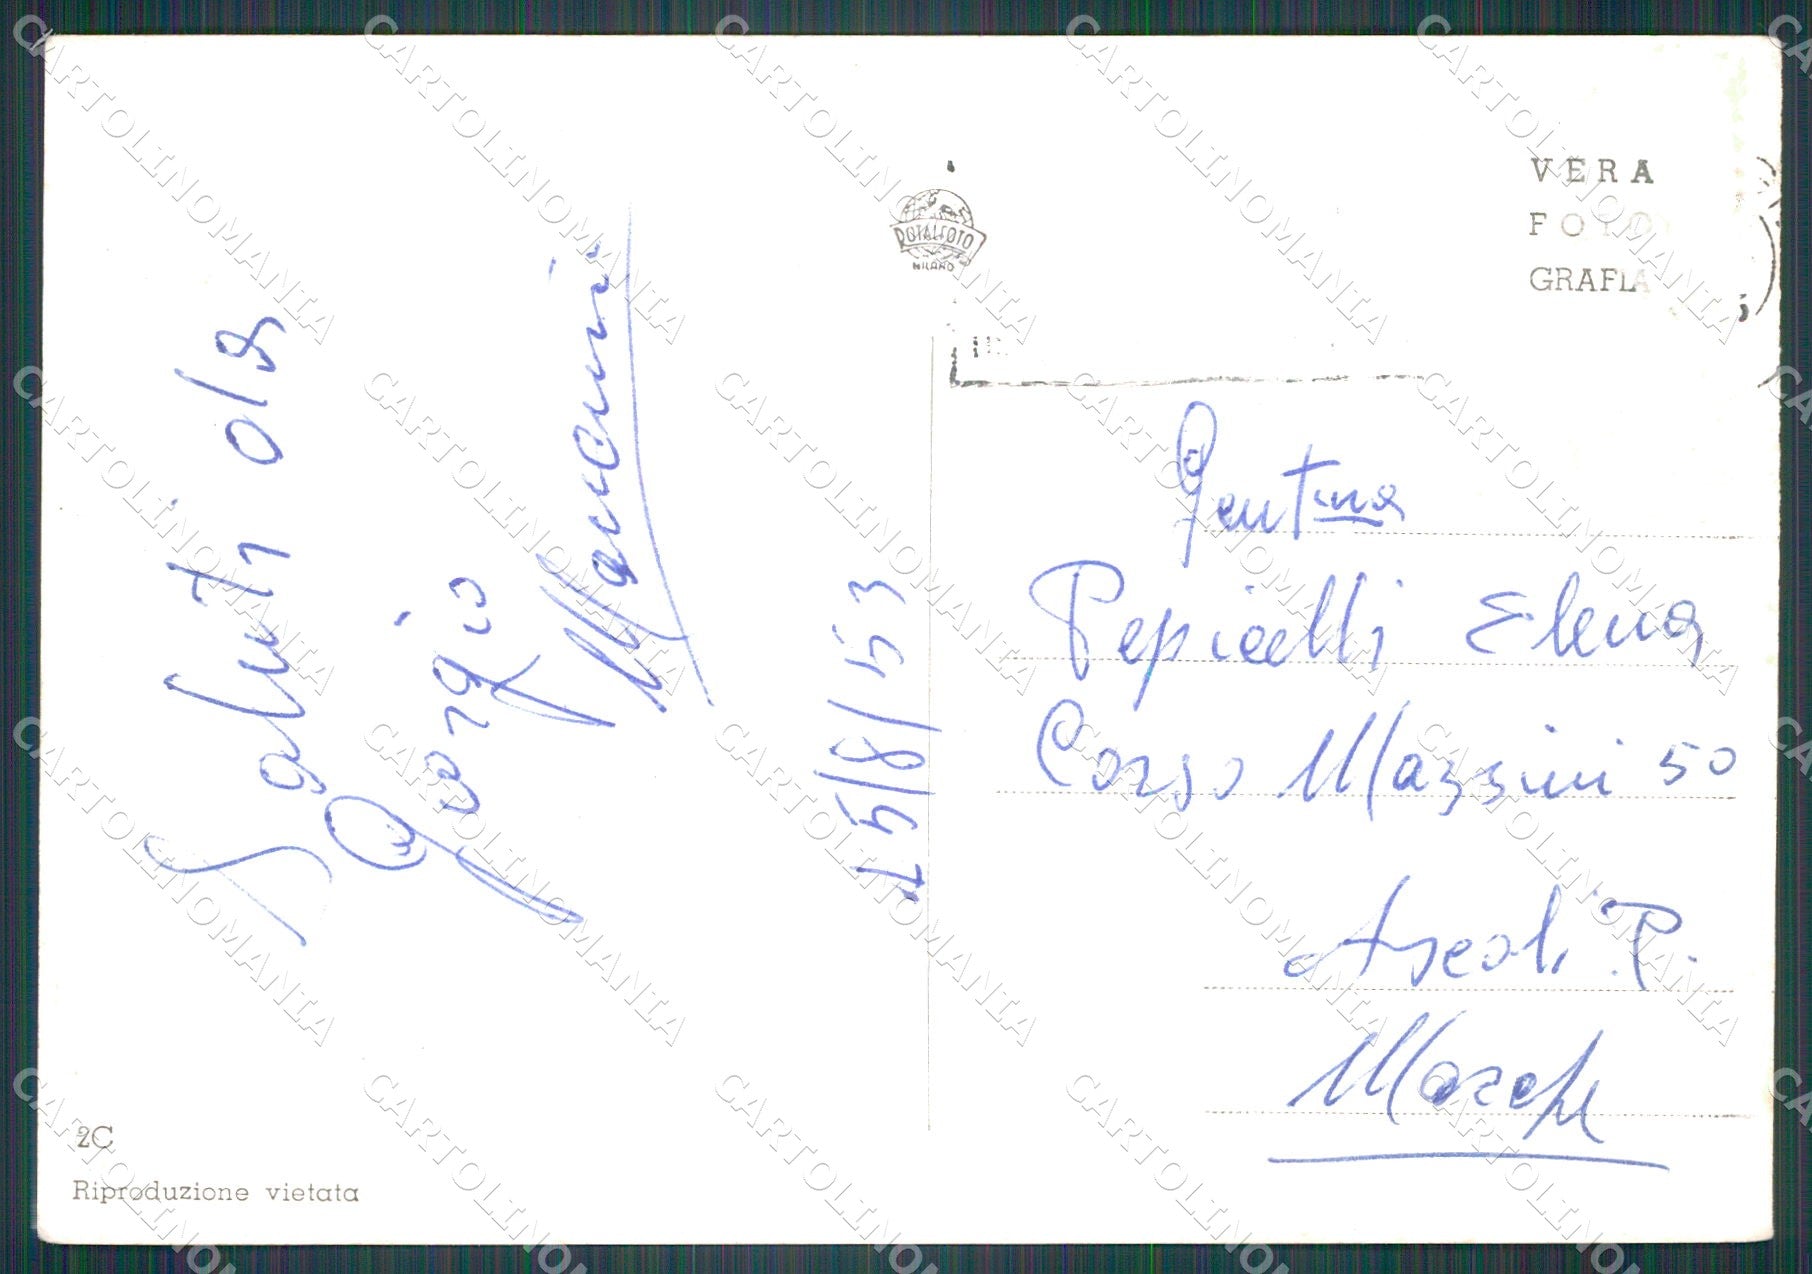 Saluti da
Giorgio
Mancini
15/8/53
ROTALFOTO
MILANO
VERA
FOTO
GRAFIA
Gent.ma
Pepicelli Elena
Corso Mazzini 50
Ascoli P.
Marche
2C
Riproduzione vietata
CARTOLINOMANIA